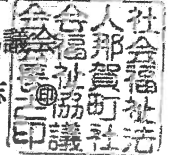 社会福祉法
人那賀町社
会福祉協議
会会長之印
議
㊞